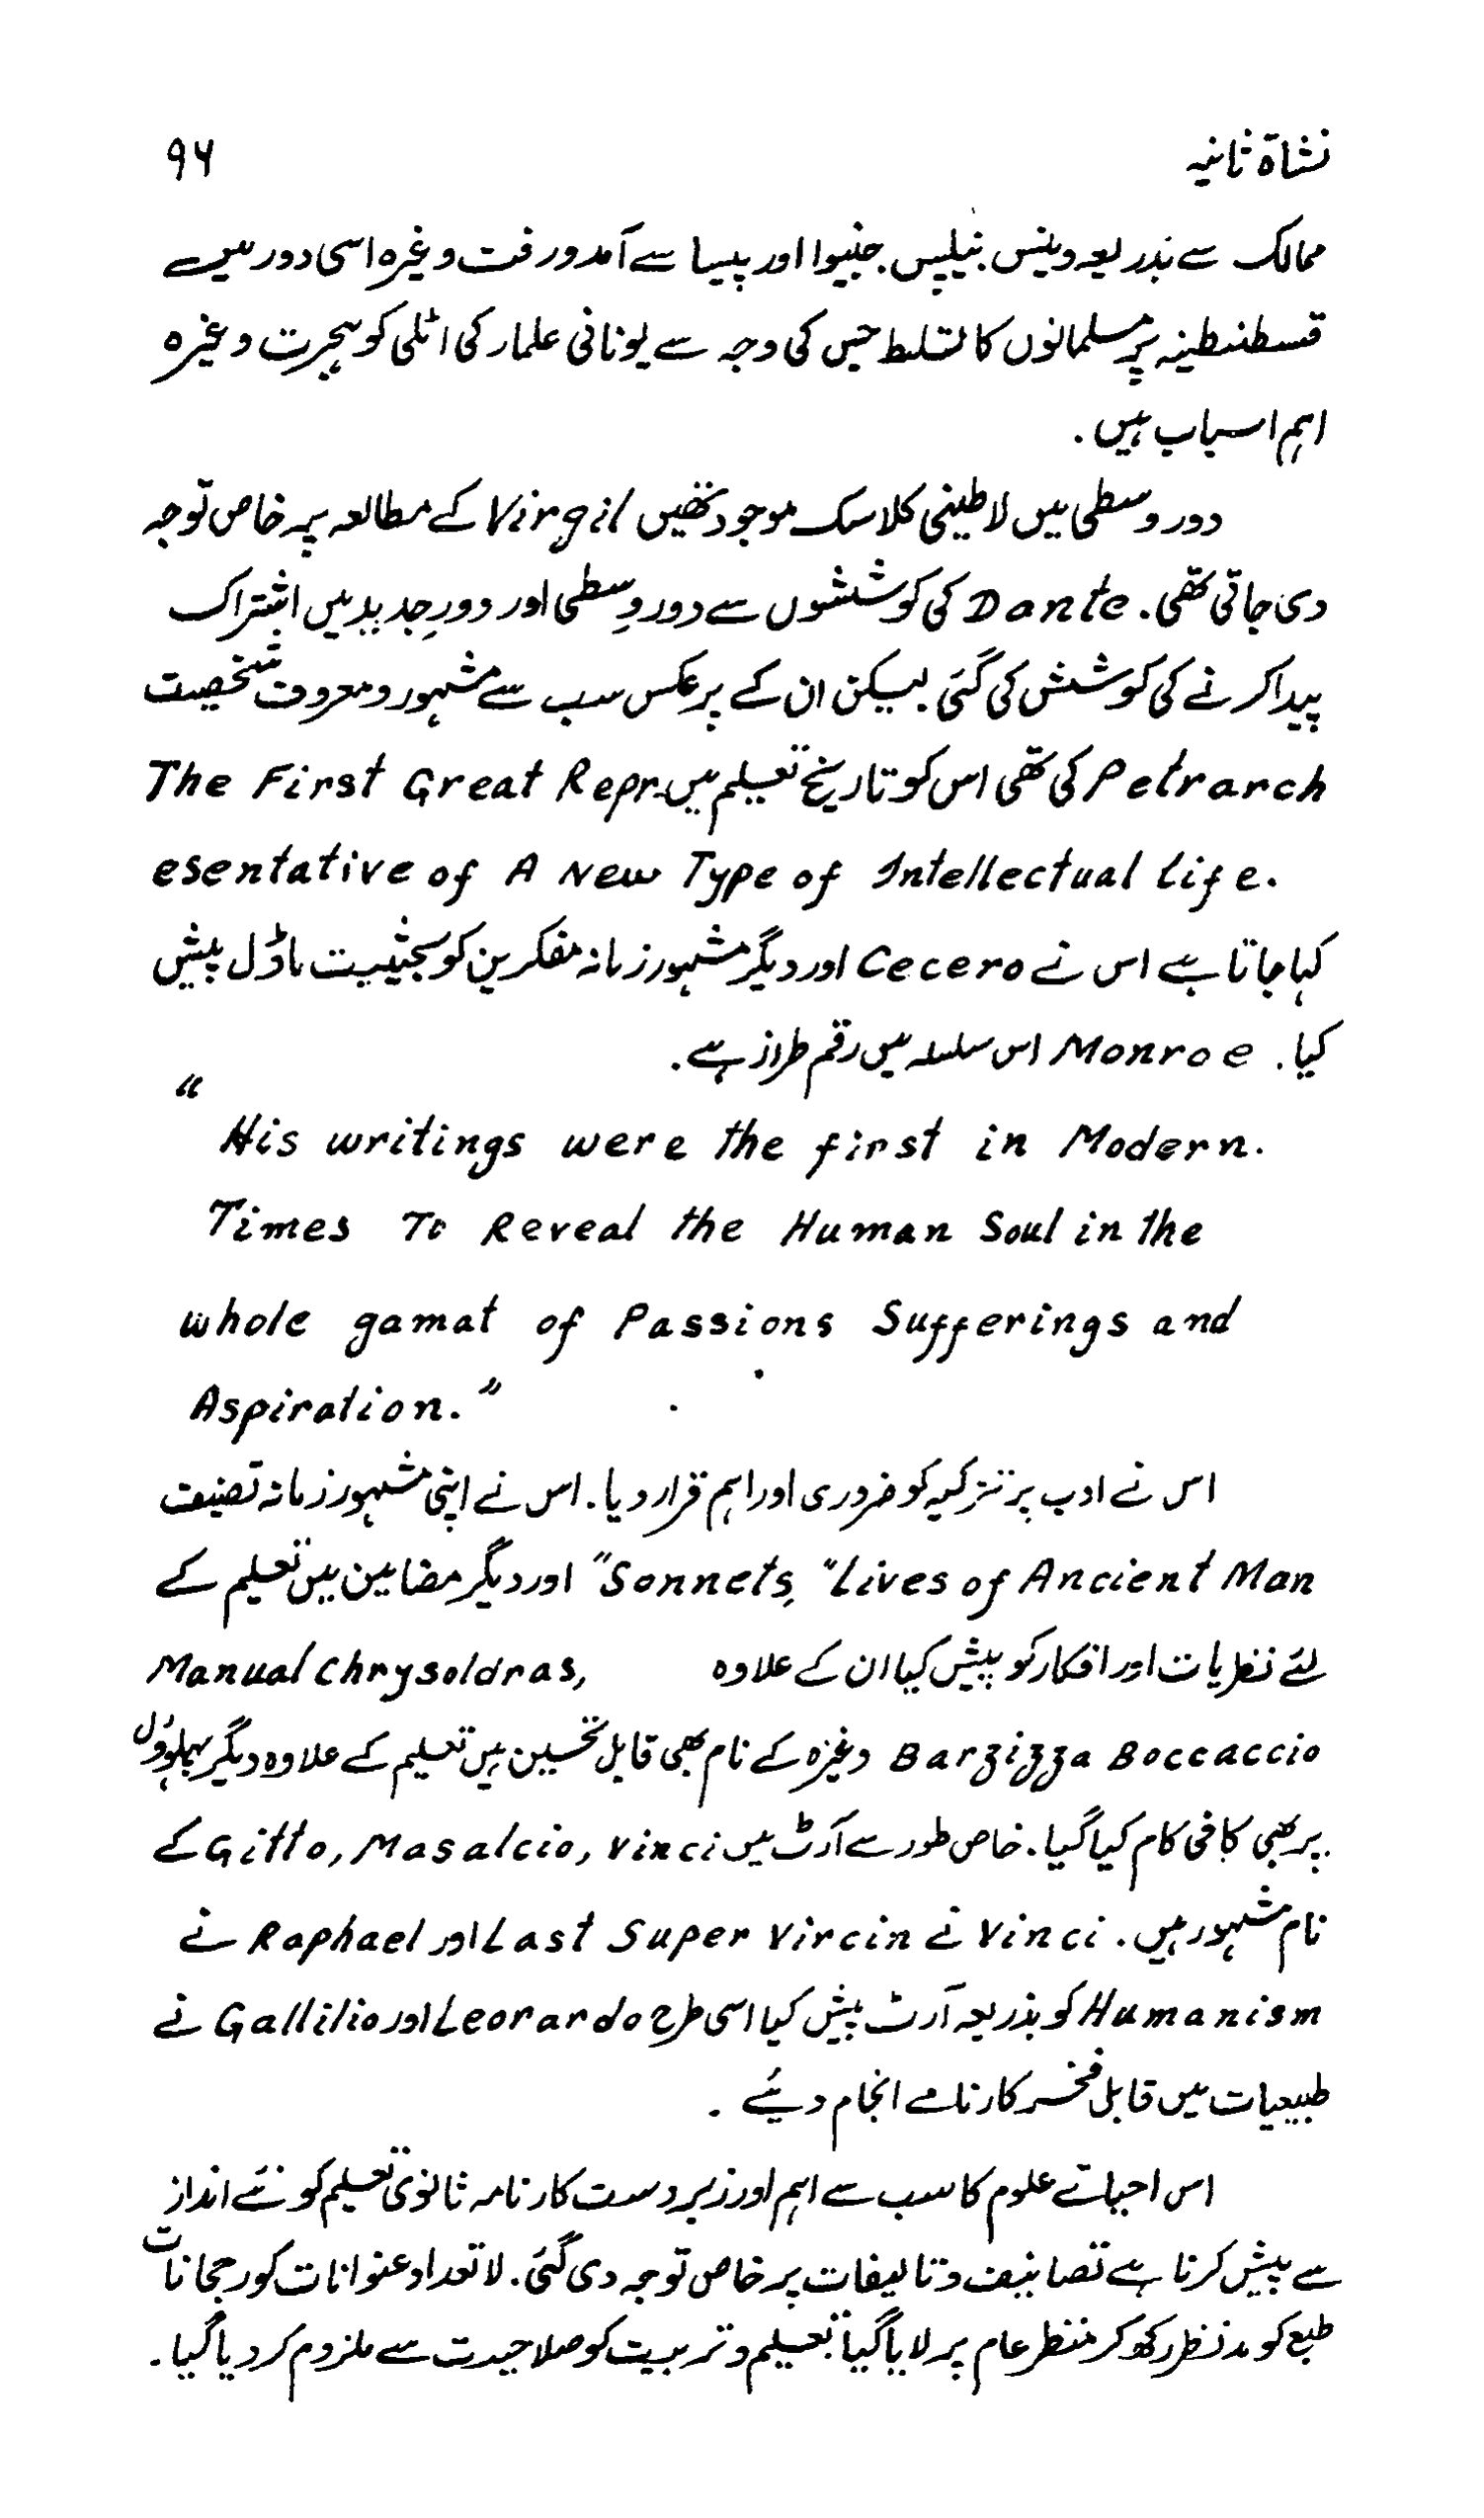 نشاۃ ثانیہ ۹۶
ممالک سے بذریعہ وینس، نیپلس، جنیوا اور پیسا سے آمدورفت وغیرہ اسی دور میں
قسطنطنیہ پر مسلمانوں کا تسلیط جس کی وجہ سے یونانی علمار کی اٹلی کو ہجرت وغیرہ
اہم اسباب ہیں۔
دور وسطی میں لاطینی کلاسک موجود تھیں Virgil کے مطالعہ پر خاص توجہ
دی جاتی تھی۔ Dante کی کوششوں سے دورِ وسطی اور دورِ جدید میں اشتراک
پیدا کرنے کی کوشش کی گئی لیکن ان کے برعکس سب سے مشہور و معروف شخصیت
Petrarch کی تھی اس کو تاریخ تعلیم میں The First Great Repr-
esentative of A New Type of Intellectual Life.
کہا جاتا ہے اس نے Cecero اور دیگر مشہور زمانہ مفکرین کو بحیثیت ماڈل پیش
کیا۔ Monroe اس سلسلہ میں رقم طراز ہے۔
“
His writings were the first in Modern.
Times To Reveal the Human Soul in the
whole gamat of Passions Sufferings and
Aspiration.”
اس نے ادب پر تزکیہ کو ضروری اور اہم قرار دیا۔ اس نے اپنی مشہور زمانہ تصنیف
“Lives of Ancient Man “Sonnets, اور دیگر مضامین میں تعلیم کے
لئے نظریات اور افکار کو پیش کیا ان کے علاوہ Manual Chrysoldras,
Barzizza Boccaccio وغیرہ کے نام بھی قابل تحسین ہیں تعلیم کے علاوہ دیگر پہلوؤں
پر بھی کافی کام کیا گیا۔ خاص طور سے آرٹ میں Gitto, Masalcio, Vinci کے
نام مشہور ہیں۔ Vinci نے Last Super Vircin اور Raphael نے
Humanism کو بذریعہ آرٹ پیش کیا اسی طرح Leorardo اور Gallilio نے
طبیعیات میں قابل فخر کارنامے انجام دیئے۔
اس احیائے علوم کا سب سے اہم اور زبردست کارنامہ ثانوی تعلیم کو نئے انداز
سے پیش کرنا ہے تصانیف و تالیفات پر خاص توجہ دی گئی۔ لاتعداد عنوانات کو رجحانات
طبع کو مدنظر رکھ کر منظر عام پر لایا گیا تعلیم و تربیت کو صلاحیت سے ملزوم کر دیا گیا۔